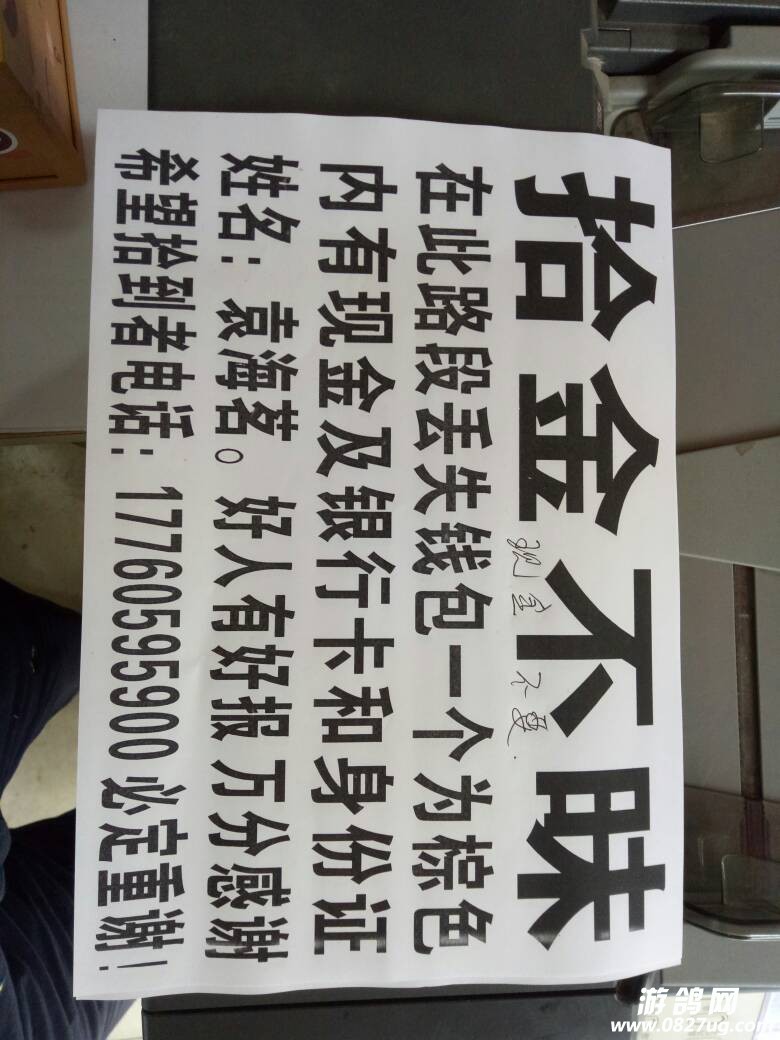 拾金不昧
现金不要.
在此路段丢失钱包一个为棕色
内有现金及银行卡和身份证
姓名：袁海茗。好人有好报万分感谢
希望拾到者电话：17760595900必定重谢！
游鸽网
www.0827ug.com